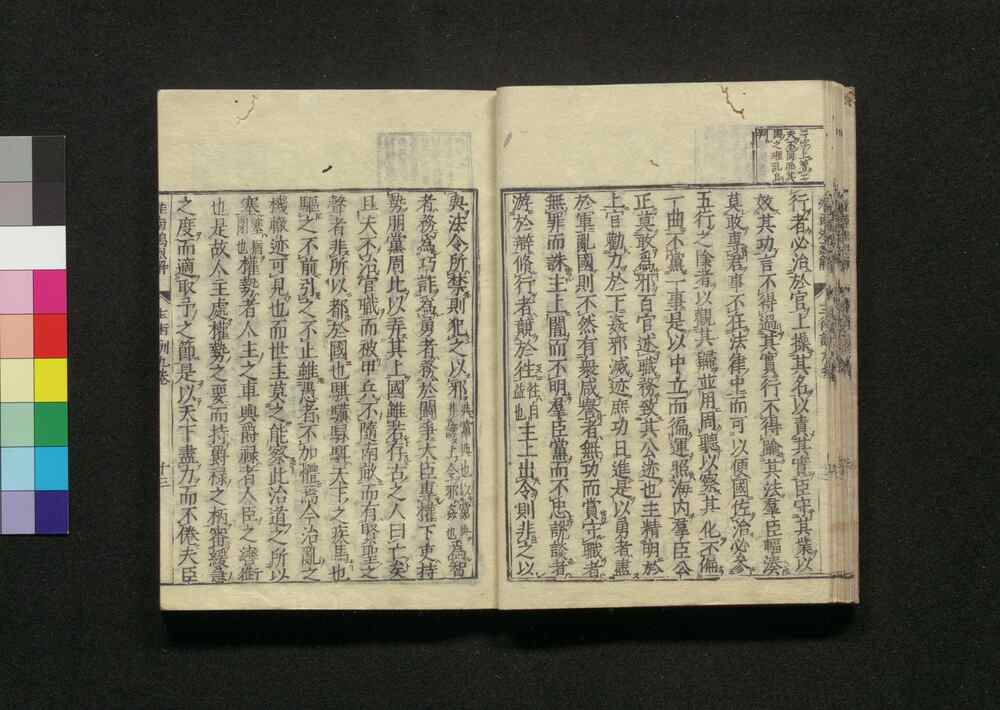 行者必治於官上操其名以責其實臣守其業以
效其功言不得過其實行不得踰其法羣臣輻湊
莫敢專君事不在法律中而可以便國佐治必參
五行之陰考以觀其歸並用周聽以察其化不偏
一曲不黨一事是以中立而徧運照海內羣臣公
正莫敢爲邪百官述職務致其公迹也主精明於
上官勸力於下姦邪滅迹庶功日進是以勇者盡
於軍亂國則不然有衆咸譽者無功而賞守職者
無罪而誅主上闇而不明羣臣黨而不忠說談者
游於辯脩行者競於往往自益也主上出令則非之以
與法令所禁則犯之以邪爲智
者務爲巧詐爲勇者務於鬭爭大臣專權下吏持
勢朋黨周比以弄其上國雖若存古之人曰亡矣
且夫不治官職而被甲兵不隨南畝而有賢聖之
聲者非所以都於國也騏驥騄駬天下之疾馬也
驅之不前引之不止雖愚者不加體焉今治亂之
機轍迹可見也而世主莫之能察此治道之所以
塞權勢者人主之車輿爵祿者人臣之轡銜
也是故人主處權勢之要而持爵祿之柄審緩急
之度而適取予之節是以天下盡力而不倦夫臣
十三